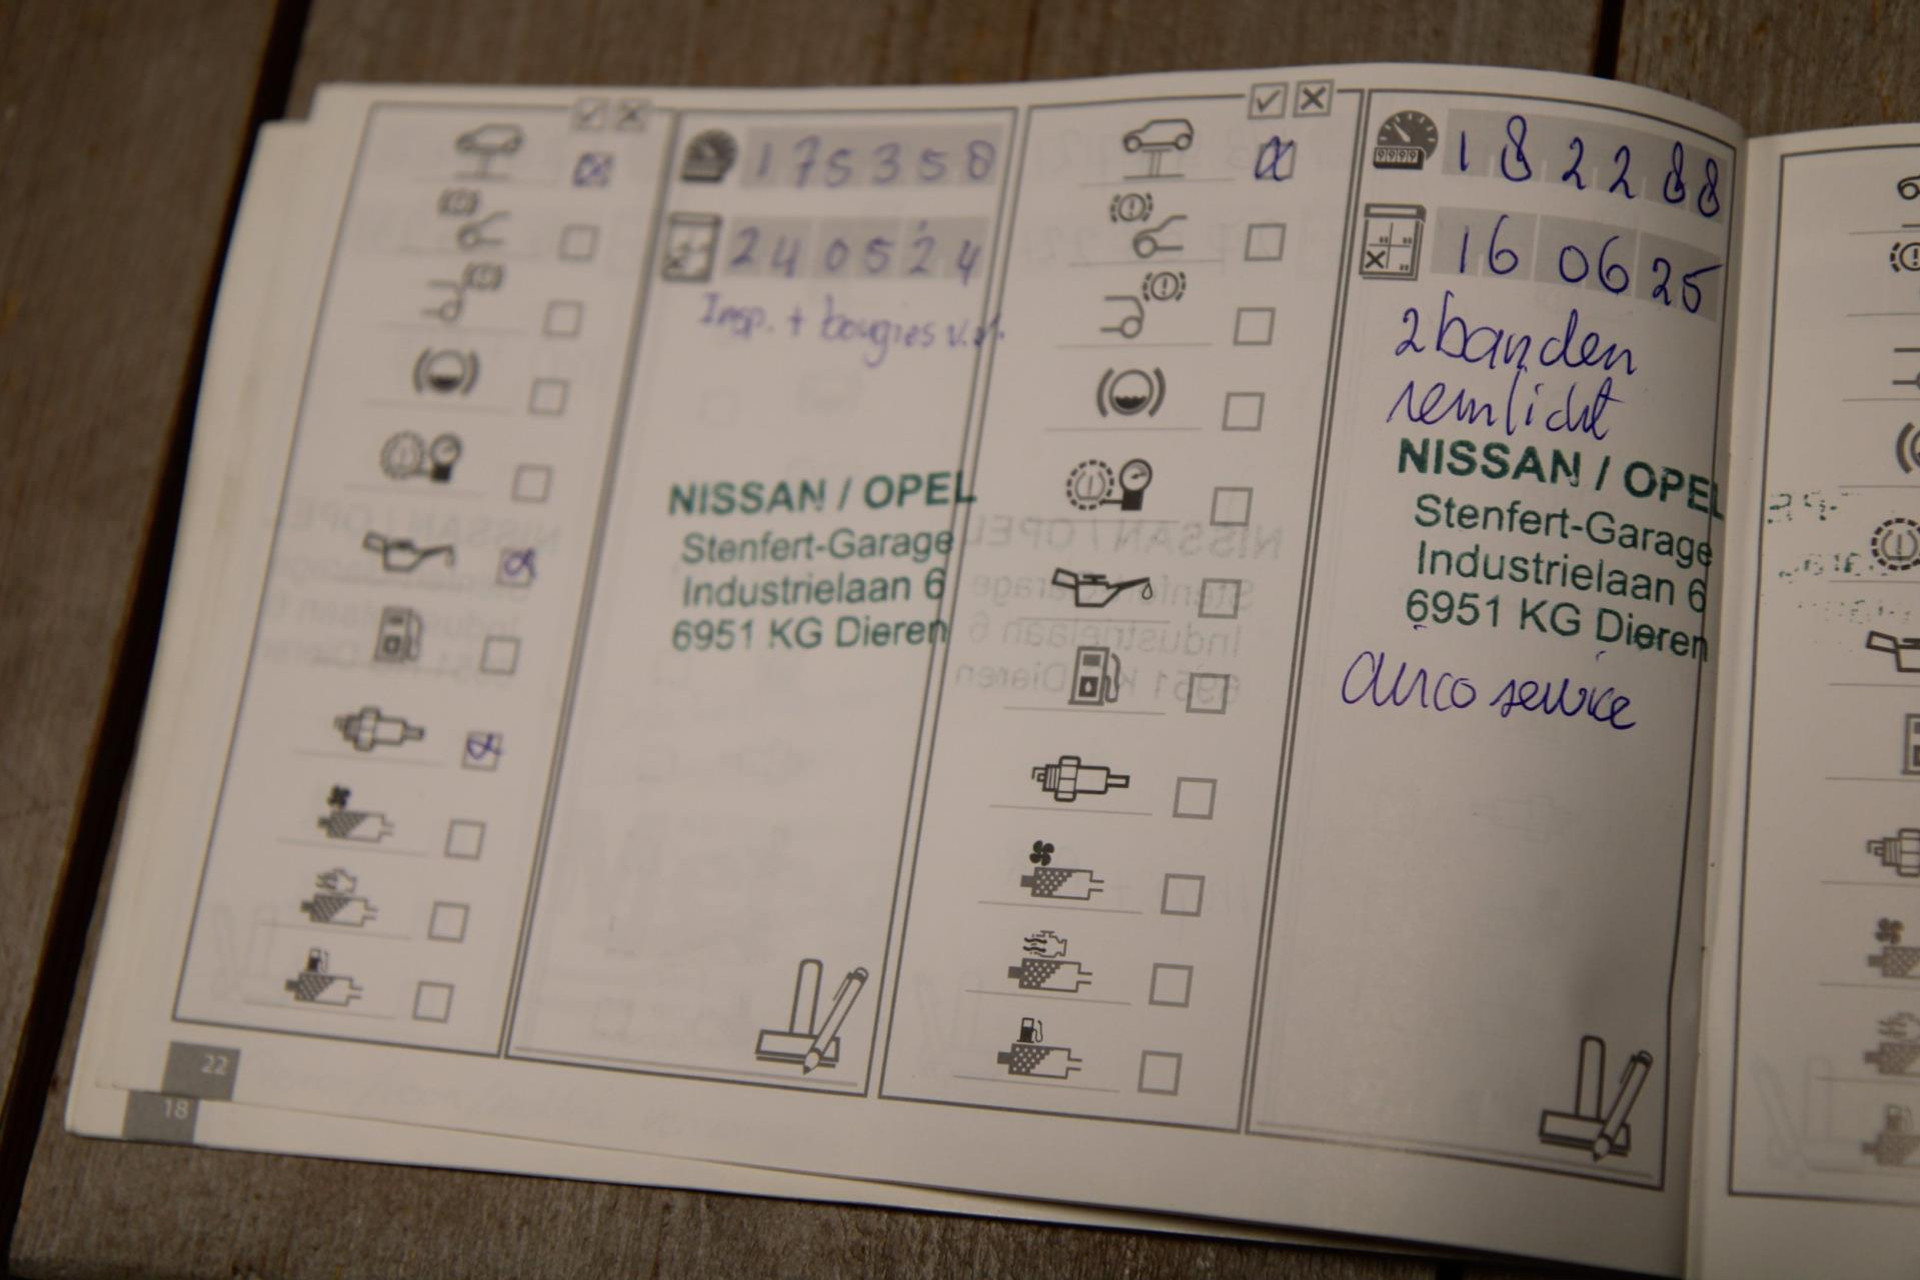 175358
240524
Insp. + bougies v.v.
NISSAN / OPEL
Stenfert-Garage
Industrielaan 6
6951 KG Dieren
182288
16 06 25
2 banden
remlicht
NISSAN / OPEL
Stenfert-Garage
Industrielaan 6
6951 KG Dieren
airco service
22
18